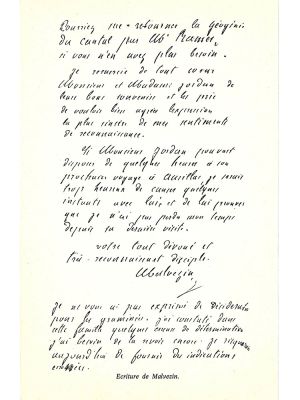 Pourriez me retourner la géogénie
du cantal par Mr Rames,
si vous n'en avez plus besoin.
Je remercie de tout coeur
Monsieur et Madame Jordan de
leurs bons souvenirs et les prie
de vouloir bien agréer l'expression
la plus sincère de mes sentiments
de reconnaissance.
Si Monsieur Jordan pouvait
disposer de quelques heures à son
prochain voyage à Aurillac je serais
trop heureux de causer quelques
instants avec lui, et de lui prouver
que je n'ai pas perdu mon temps
depuis sa dernière visite.
Votre tout dévoué et
très reconnaissant disciple.
Malvezin
Je ne vous ai pas exprimé de desiderata
pour les graminées. J'ai constaté dans
cette famille quelques erreurs de détermination
j'ai besoin de la revoir encore. Je
aujourd'hui de fournir des indications
erronées.
Ecriture de Malvezin.